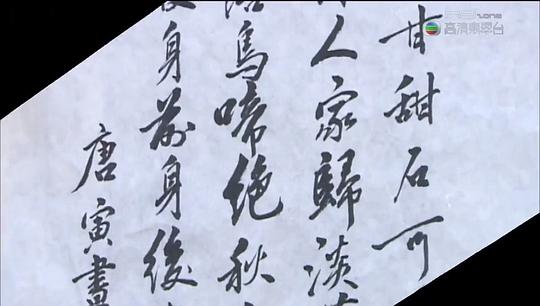 甘甜石可
人家歸淡
鳥啼絶秋
身前身後
唐寅書
高清翡翠台